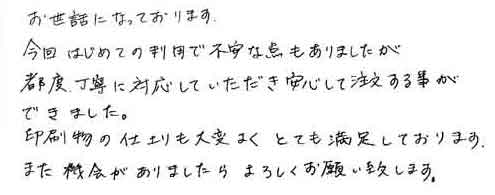 お世話になっております.
今回はじめての利用で不安な点もありましたが
都度、丁寧に対応していただき安心して注文する事が
できました。
印刷物の仕上りも大変よく とても満足しております.
また機会がありましたら よろしくお願い致します。